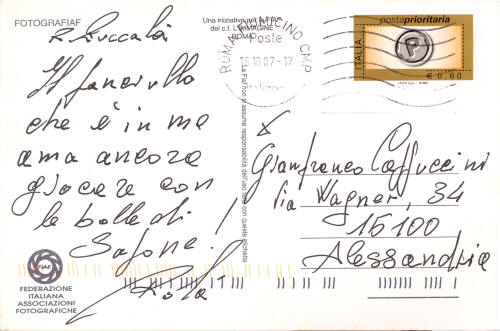 FOTOGRAFIAF
Il fanciullo
che è in me
ama ancora
giocare con
le bolle di
Sapone!
FIAF
FEDERAZIONE
ITALIANA
ASSOCIAZIONI
FOTOGRAFICHE
Una iniziativa per la FIAF
del c.f. L'IMMAGINE
ROMA
La Fiaf non si assume responsabilità dell'uso
ROMA FIUMICINO CMP
Poste
18.10.07 - 17
Italiane
postaprioritaria
ITALIA
P
€ 0,60
Gianfranco Caffuccini
Via Wagner, 34
15100
Alessandria